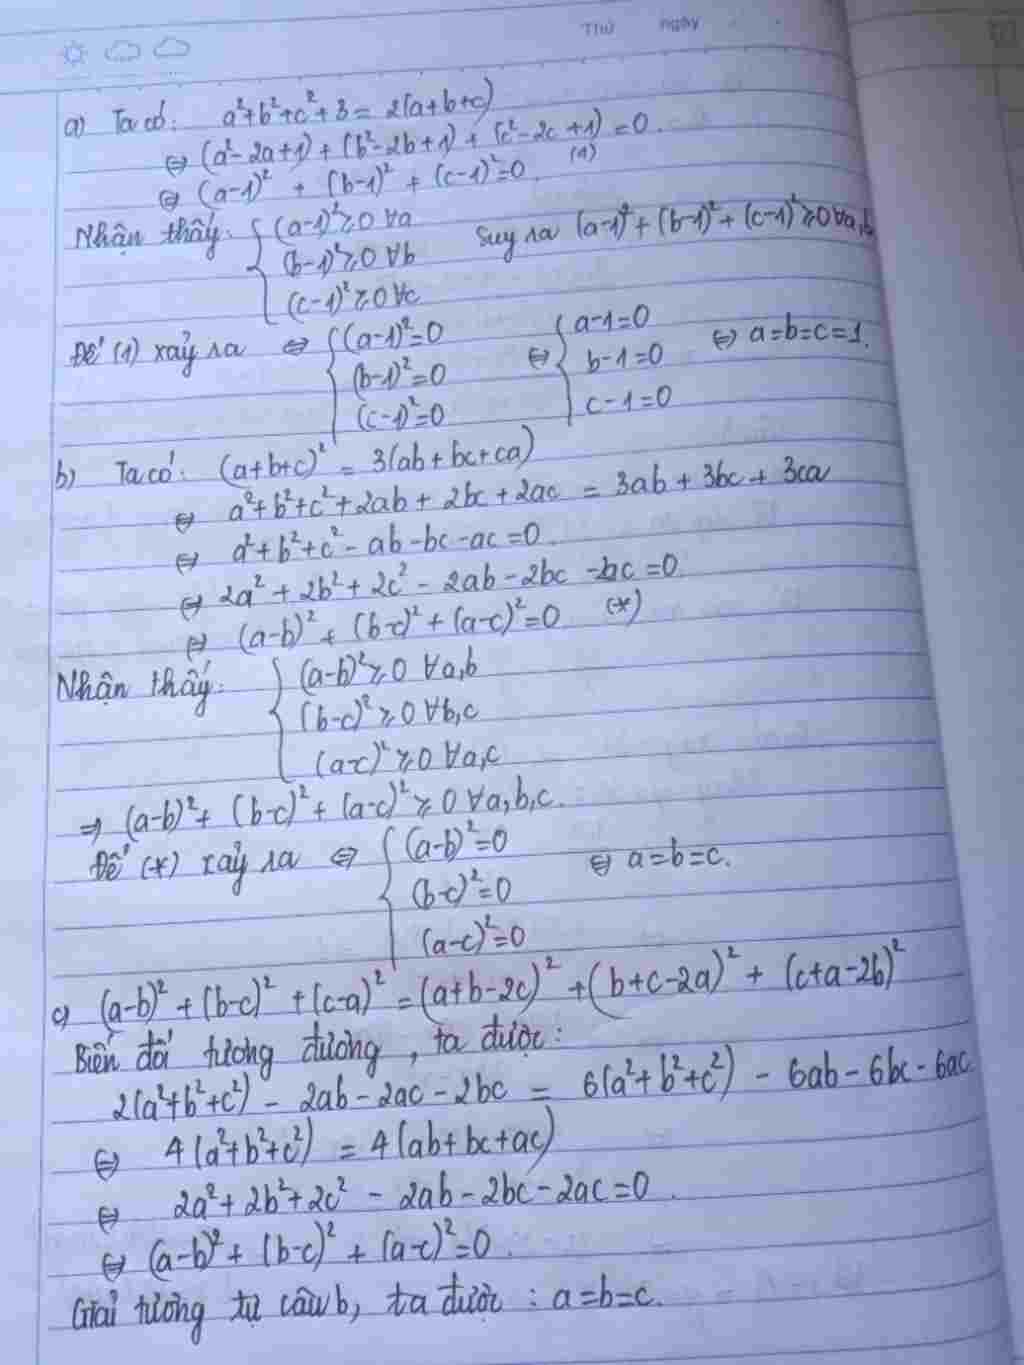 Thứ ngày
a) Ta có: a²+b²+c²+3 = 2(a+b+c)
⇔ (a²-2a+1) + (b²-2b+1) + (c²-2c+1) = 0.
⇔ (a-1)² + (b-1)² + (c-1)² = 0 (1)
Nhận thấy: { (a-1)² ≥ 0 ∀a Suy ra (a-1)² + (b-1)² + (c-1)² ≥ 0 ∀a,b
(b-1)² ≥ 0 ∀b
(c-1)² ≥ 0 ∀c
Để (1) xảy ra ⇔ { (a-1)²=0 ⇔ { a-1=0 ⇔ a=b=c=1.
(b-1)²=0 b-1=0
(c-1)²=0 c-1=0
b) Ta có: (a+b+c)² = 3(ab+bc+ca)
⇔ a²+b²+c²+2ab+2bc+2ac = 3ab+3bc+3ca
⇔ a²+b²+c²-ab-bc-ac=0.
⇔ 2a²+2b²+2c²-2ab-2bc-2ac=0
⇔ (a-b)²+(b-c)²+(a-c)²=0 (*)
Nhận thấy: { (a-b)² ≥ 0 ∀a,b
(b-c)² ≥ 0 ∀b,c
(a-c)² ≥ 0 ∀a,c
⇒ (a-b)²+(b-c)²+(a-c)² ≥ 0 ∀a,b,c.
Để (*) xảy ra ⇔ { (a-b)²=0 ⇔ a=b=c.
(b-c)²=0
(a-c)²=0
c) (a-b)²+(b-c)²+(c-a)² = (a+b-2c)²+(b+c-2a)²+(c+a-2b)²
Biến đổi tương đương, ta được:
2(a²+b²+c²)-2ab-2ac-2bc = 6(a²+b²+c²)-6ab-6bc-6ac
⇔ 4(a²+b²+c²) = 4(ab+bc+ac)
⇔ 2a²+2b²+2c²-2ab-2bc-2ac=0.
⇔ (a-b)²+(b-c)²+(a-c)²=0.
Giải tương tự câu b, ta được: a=b=c.